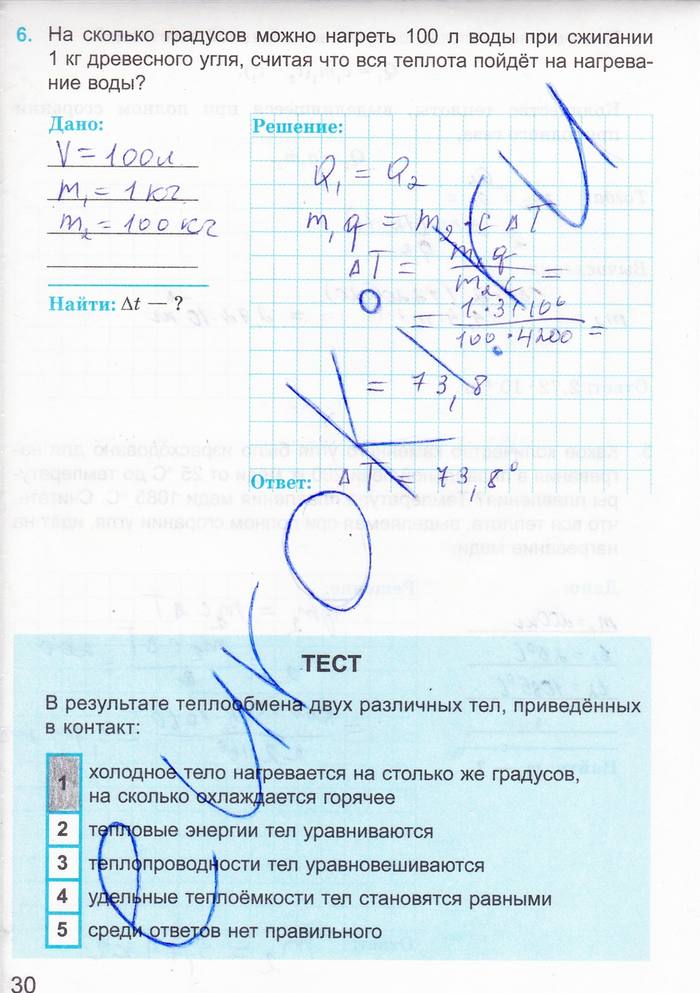 6. На сколько градусов можно нагреть 100 л воды при сжигании
1 кг древесного угля, считая что вся теплота пойдёт на нагрева-
ние воды?
Дано:
V = 100л
m₁ = 1 кг
m₂ = 100 кг
Найти: Δt — ?
Решение:
Q₁ = Q₂
m₁q = m₂·c ΔT
ΔT = m₁q / m₂c =
= 1·31·10⁶ / 100·4200 =
= 73,8
Ответ: ΔT = 73,8°
ТЕСТ
В результате теплообмена двух различных тел, приведённых
в контакт:
1 холодное тело нагревается на столько же градусов,
на сколько охлаждается горячее
2 тепловые энергии тел уравниваются
3 теплопроводности тел уравновешиваются
4 удельные теплоёмкости тел становятся равными
5 среди ответов нет правильного
30